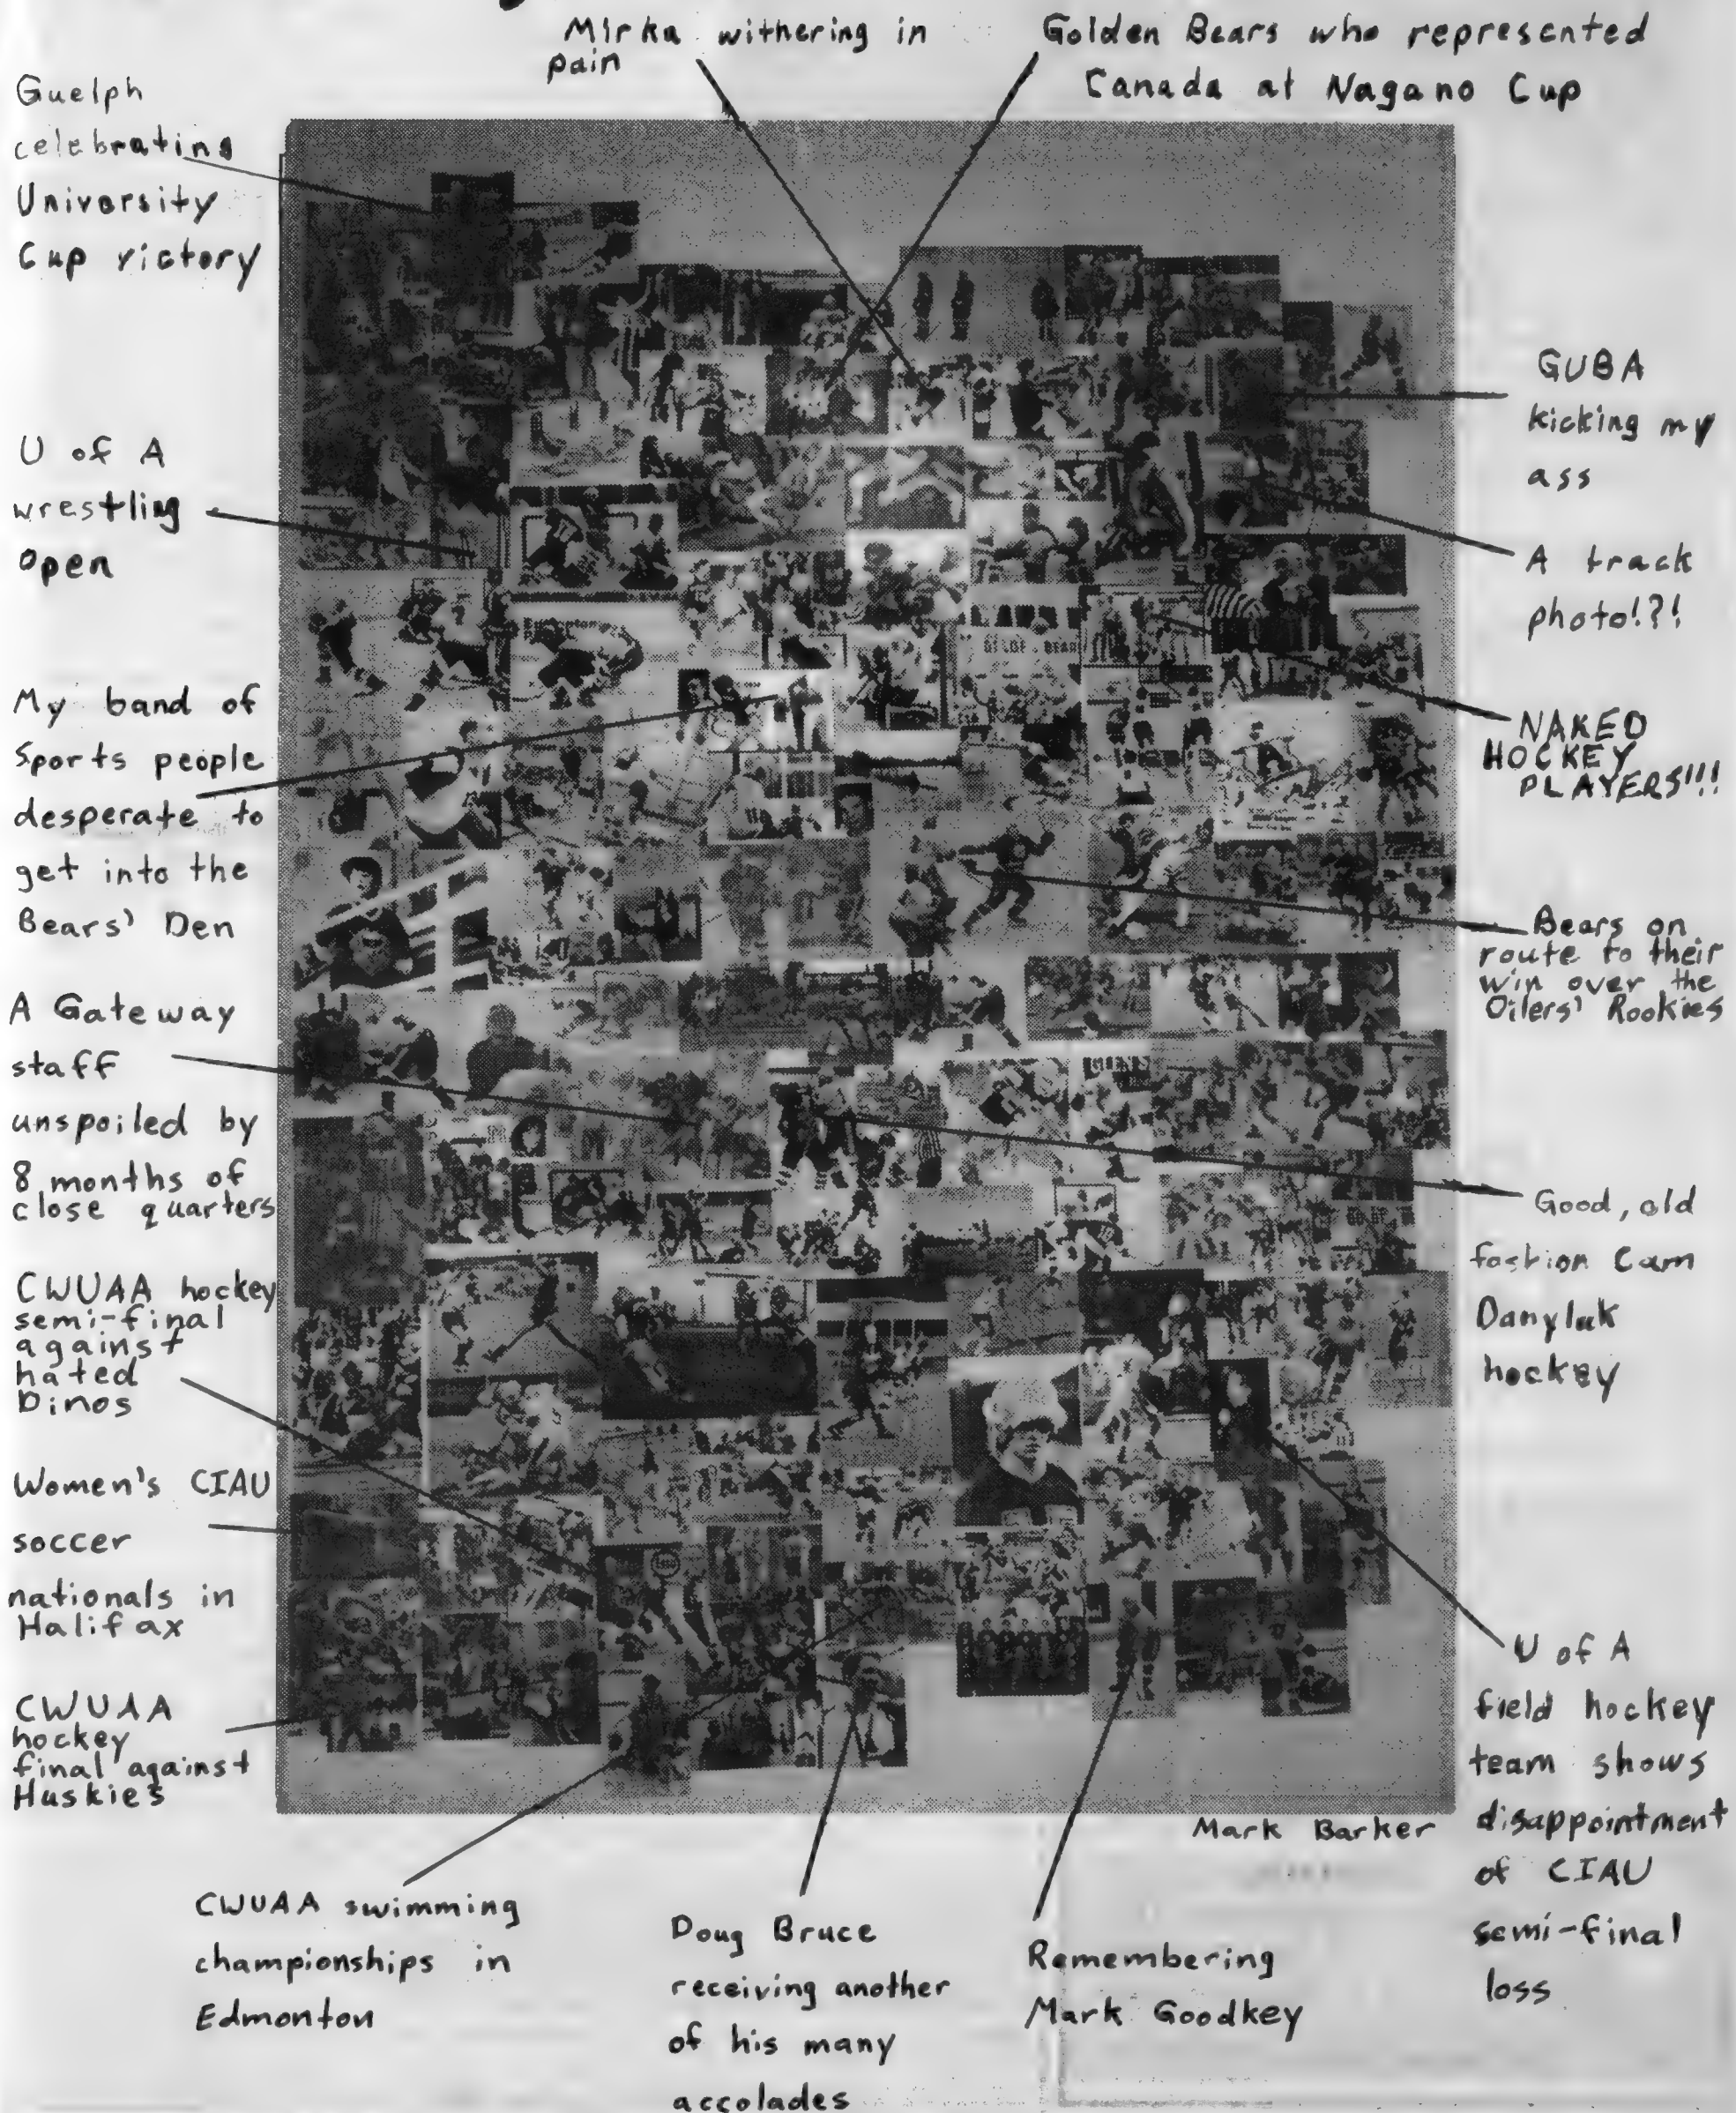 Mirka withering in
pain
Golden Bears who represented
Canada at Nagano Cup
Guelph
celebrating
University
Cup victory
U of A
wrestling
open
My band of
Sports people
desperate to
get into the
Bears' Den
A Gateway
staff
unspoiled by
8 months of
close quarters
CWUAA hockey
semi-final
against
hated
Dinos
Women's CIAU
soccer
nationals in
Halifax
CWUAA
hockey
final against
Huskies
GUBA
kicking my
ass
A track
photo!?!
NAKED
HOCKEY
PLAYERS!!!
Bears on
route to their
win over the
Oilers' Rookies
Good, old
fashion Cam
Danyluk
hockey
U of A
field hockey
team shows
disappointment
of CIAU
semi-final
loss
Mark Barker
CWUAA swimming
championships in
Edmonton
Doug Bruce
receiving another
of his many
accolades
Remembering
Mark Goodkey